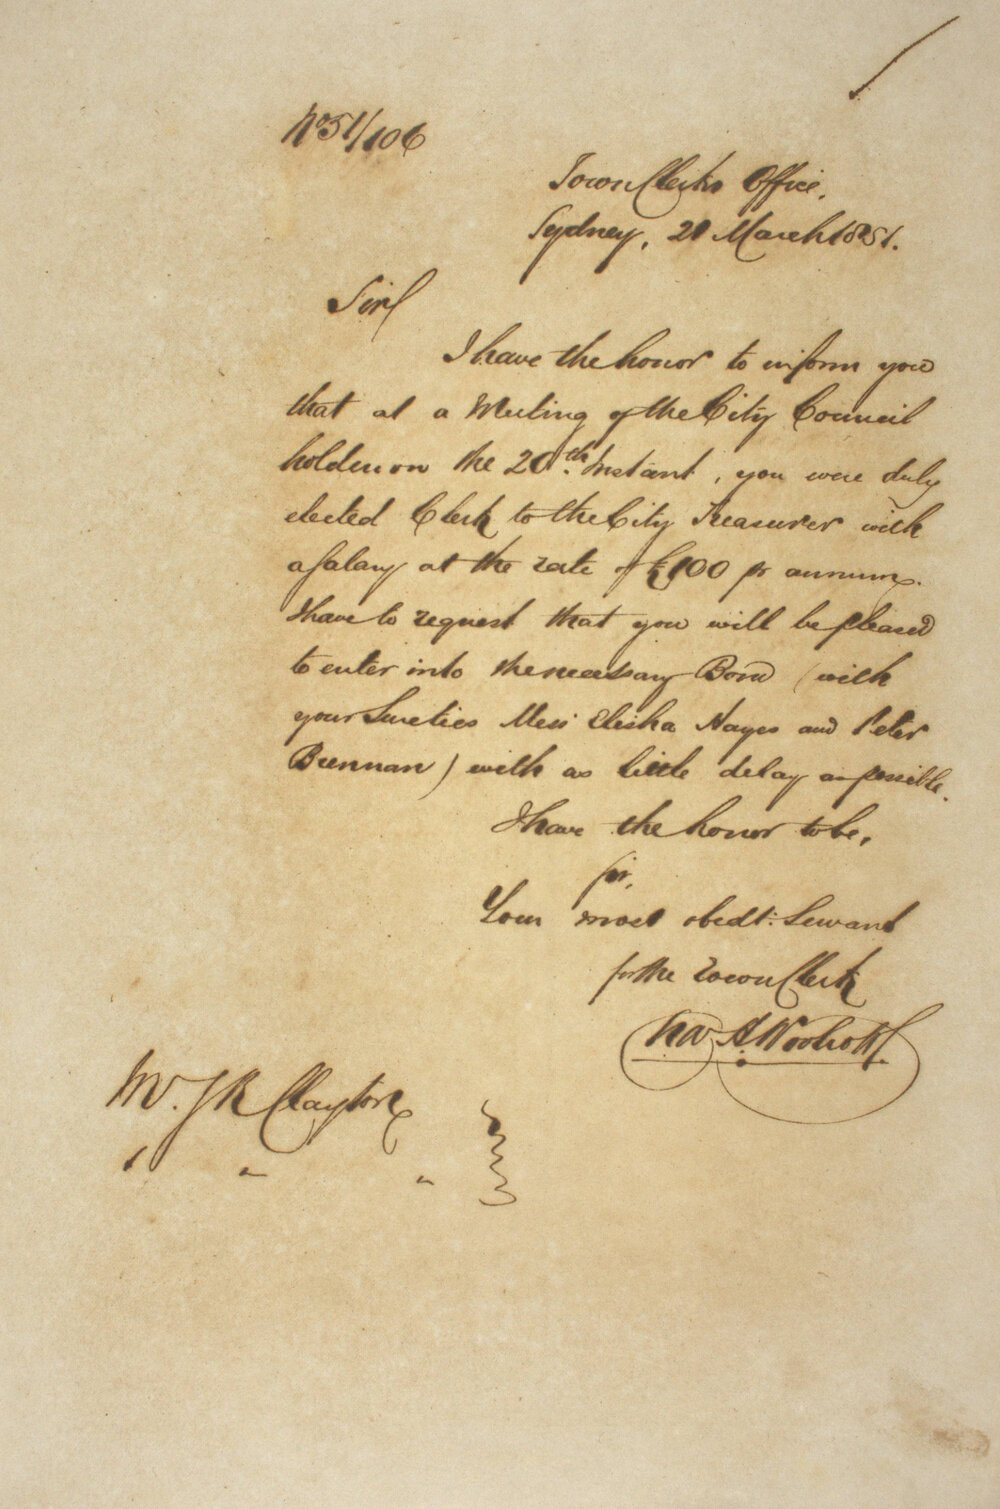 No 51/106
Town Clerks Office,
Sydney, 21 March 1851.
Sir/
I have the honor to inform you
that at a Meeting of the City Council
holden on the 20th. Instant, you were duly
elected Clerk to the City Treasurer with
a salary at the rate of £100 pr annum.
I have to request that you will be pleased
to enter into the necessary Bond (with
your Sureties Mess Elisha Hayes and Peter
Brennan) with as little delay as possible.
I have the honor to be,
Sir,
Your most obedt: Servant
for the Town Clerk
Chas H Woolcott
Mr. J R Clayton
" " "